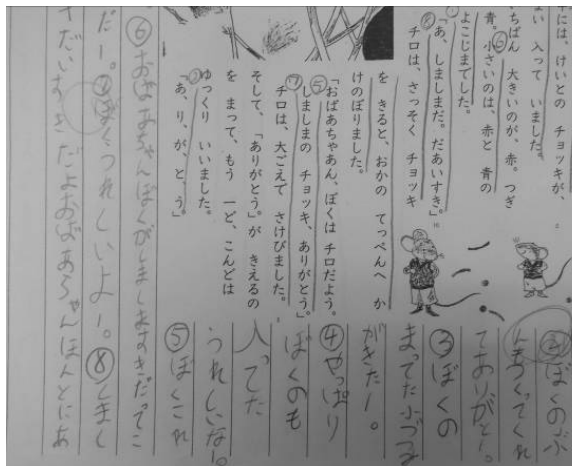 には、けいとの チョッキが、
入って いました。
ちばん 大きいのが、赤。つぎ
青。小さいのは、赤と 青の
よこじまでした。
「あ、しましまだ。だあいすき。」
チロは、さっそく チョッキ
を きると、おかの てっぺんへ か
けのぼりました。
⑤
「おばあちゃあん、ぼくは チロだよう。
⑦
しましまの チョッキ、ありがとう。」
チロは、大ごえで さけびました。
そして、「ありがとう。」が きえるの
を まって、もう 一ど、こんどは
ゆっくり いいました。
「あ、り、が、と、う。」
②ぼくのぶ
んもつくってくれ
てありがとー。
③ぼくの
まってたぶつが
がきたー。
④やっぱり
ぼくのも
入ってた
うれしいなー。
⑤ぼくこれ
⑥おばあちゃんぼくがしましますきだってこ
だー。⑦ぼくうれしいよー。⑧しましま
だよおばあちゃんほんとにあ